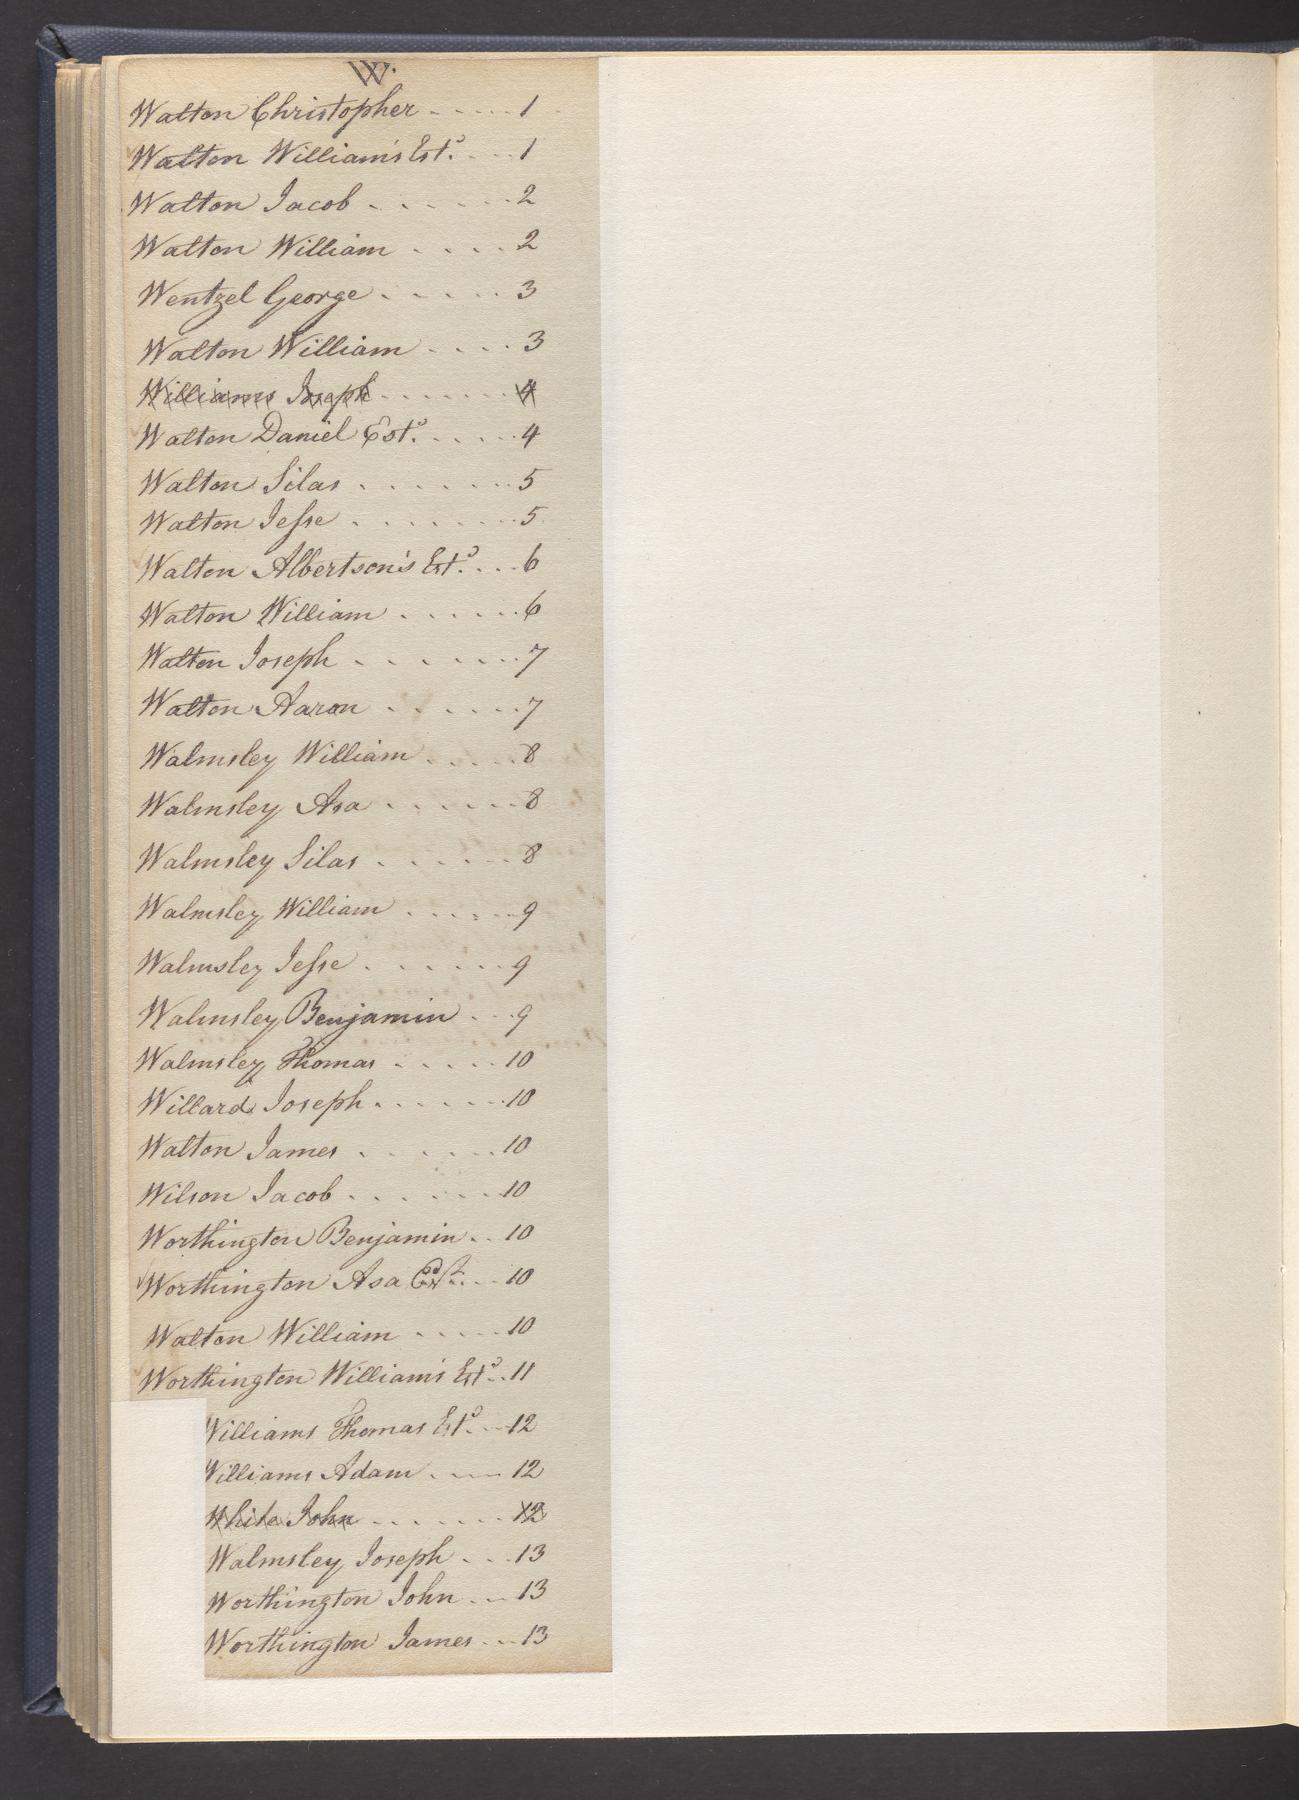 W.
Walton Christopher - - - - - 1
Walton William's Est.ᵒ - - - 1
Walton Jacob - - - - - - 2
Walton William - - - - 2
Wentzel George - - - - - 3
Walton William - - - - 3
Williams Joseph - - - - - - - 4
Walton Daniel Est.ᵒ - - - - 4
Walton Silas - - - - - - - 5
Walton Jeſse - - - - - - - 5
Walton Albertson's Est.ᵒ - - - 6
Walton William - - - - - - 6
Walton Joseph - - - - - - - 7
Walton Aaron - - - - - - 7
Walmsley William - - - - - 8
Walmsley Asa - - - - - - 8
Walmsley Silas - - - - - - 8
Walmsley William - - - - - 9
Walmsley Jeſse - - - - - - 9
Walmsley Benjamin - - - 9
Walmsley Thomas - - - - - 10
Willard Joseph - - - - - - - 10
Walton James - - - - - - 10
Wilson Jacob - - - - - - 10
Worthington Benjamin - - 10
Worthington Asa Est. - - - 10
Walton William - - - - - 10
Worthington William's Est.ᵒ - - 11
Williams Thomas Est.ᵒ - - 12
Williams Adam - - - - 12
White John - - - - - - - 12
Walmsley Joseph - - - 13
Worthington John - - - 13
Worthington James - - - 13